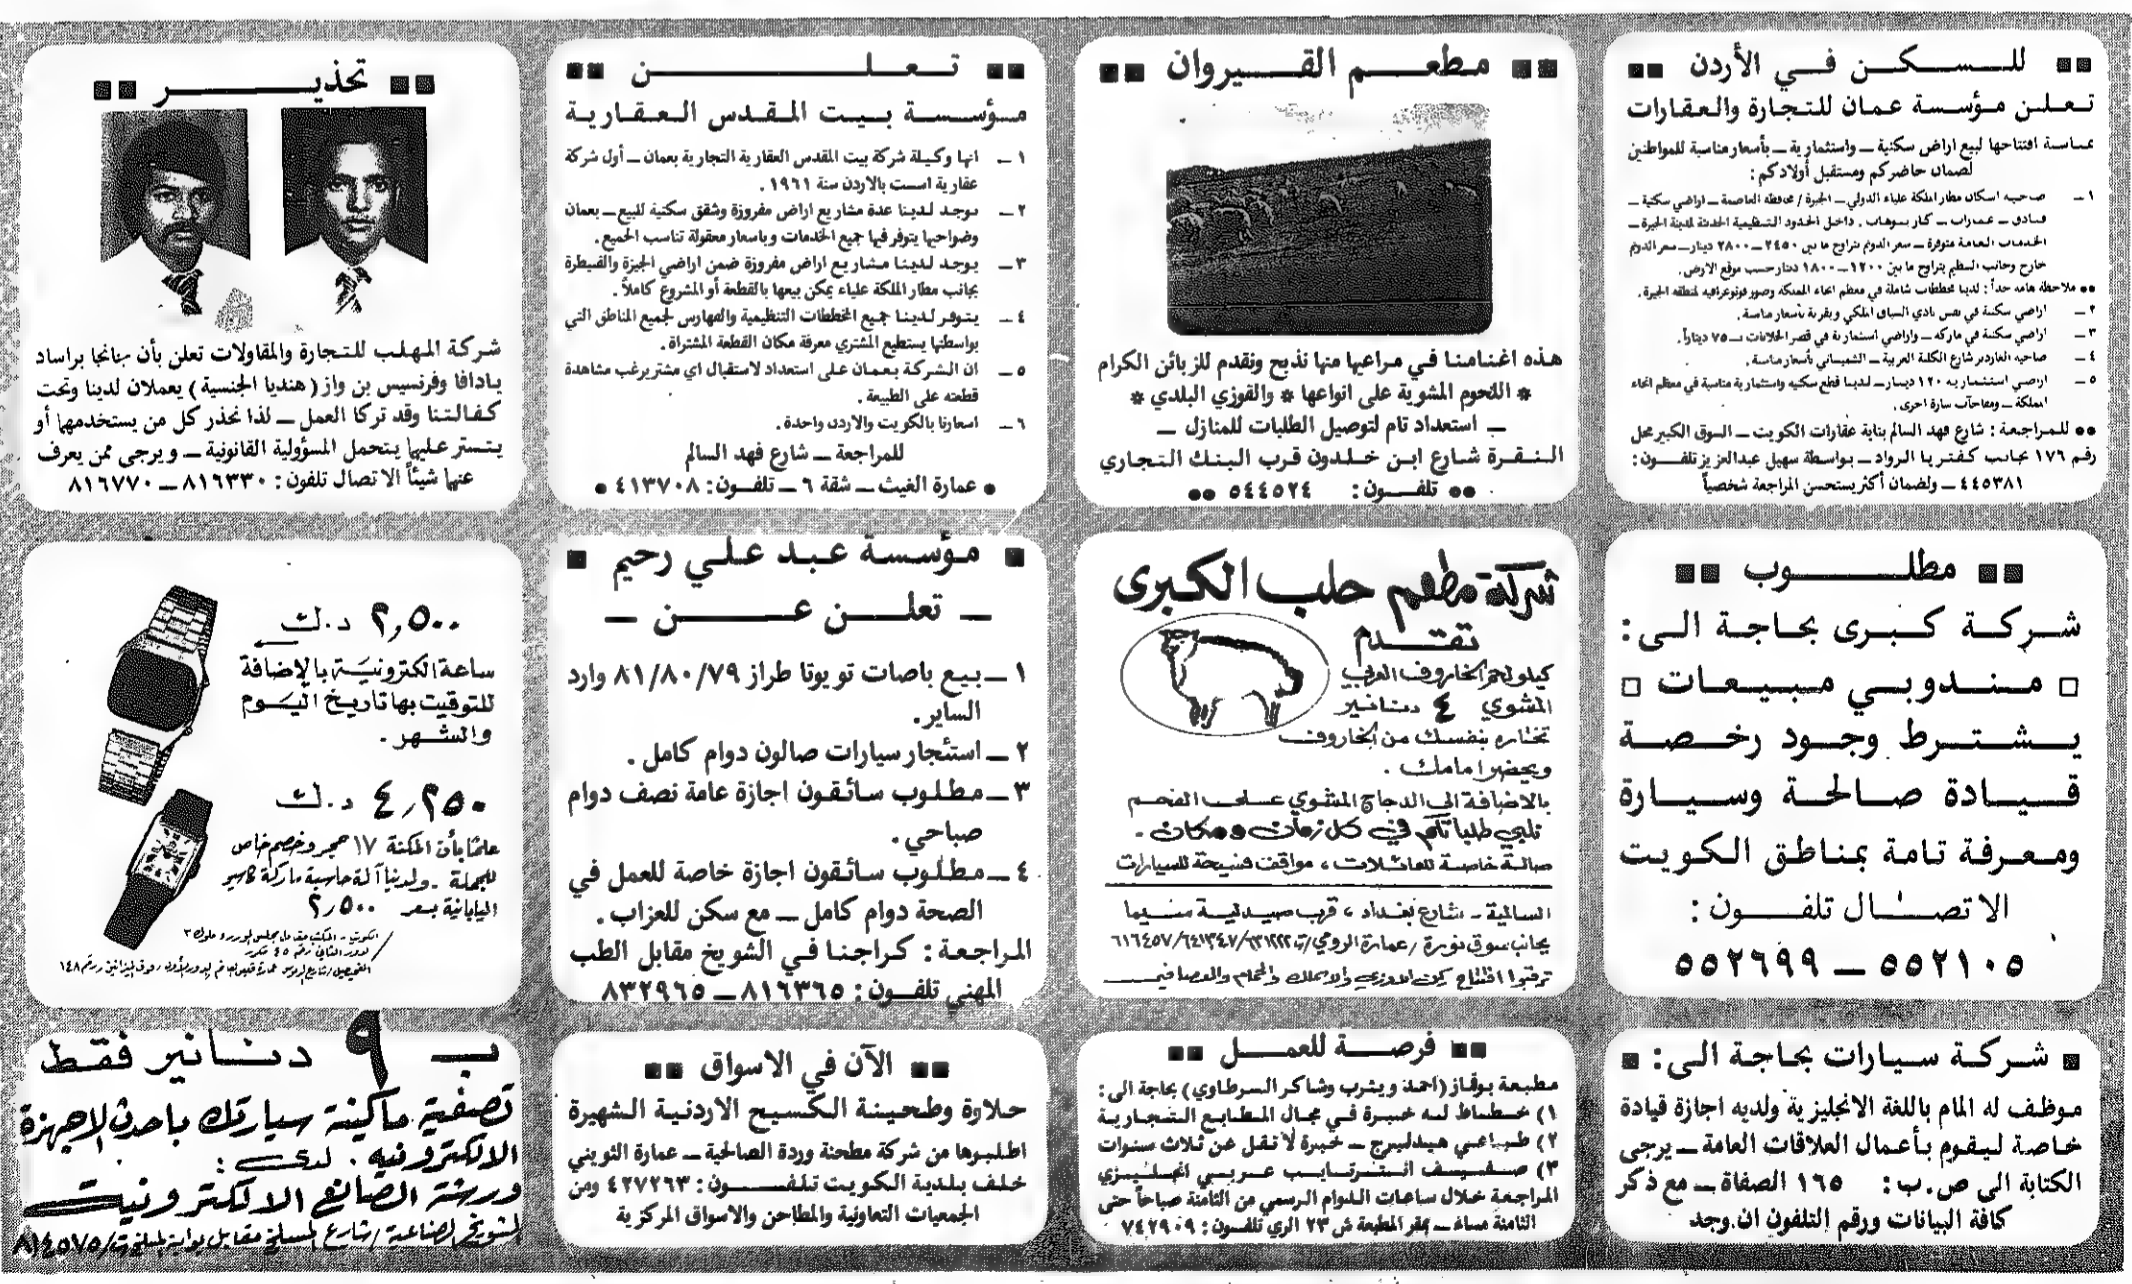 للسكن في الأردن
تعلن مؤسسة عمان للتجارة والعقارات
بمناسبة افتتاحها لبيع اراض سكنية — واستثمارية — بأسعار مناسبة للمواطنين
لضمان حاضركم ومستقبل أولادكم :
١ — ضاحية اسكان مطار الملكة علياء الدولي — الجيزة / محافظة العاصمة — اراضي سكنية —
فنادق — عمارات — كازينوهات . داخل الحدود التنظيمية الحديثة لمدينة الجيزة —
الخدمات العامة متوفرة — سعر الدونم يتراوح ما بين ٢٤٥٠ — ٢٨٠٠ دينار — سعر الدونم
خارج وجانب التنظيم يتراوح ما بين ١٢٠٠ — ١٨٠٠ دينار حسب موقع الارض .
•• ملاحظة هامة جداً : لدينا مخططات شاملة في معظم انحاء المملكة وصور فوتوغرافية لمنطقة الجيزة .
٢ — اراضي سكنية في نفس نادي السباق الملكي وبقربه بأسعار مناسبة .
٣ — اراضي سكنية في ماركه — واراضي استثمارية في قصر الحلابات — ٧٥ ديناراً .
٤ — ضاحية الجاردنز شارع الكلية العربية — الشميساني بأسعار مناسبة .
٥ — اراضي استثمارية ١٢٠ دينار — لدينا قطع سكنية واستثمارية مناسبة في معظم انحاء
المملكة — ومفاجآت سارة اخرى .
•• للمراجعة : شارع فهد السالم بناية عقارات الكويت — السوق الكبير محل
رقم ١٧٦ بجانب كفتريا الرواد — بواسطة سهيل عبدالعزيز تلفون :
٤٤٥٣٨١ — ولضمان أكثر يستحسن المراجعة شخصياً
مطعم القيروان
هذه اغنامنا في مراعيها منها نذبح ونقدم للزبائن الكرام
* اللحوم المشوية على انواعها * والقوزي البلدي *
— استعداد تام لتوصيل الطلبات للمنازل —
النقرة شارع ابن خلدون قرب البنك التجاري
•• تلفون : ٥٤٤٥٢٤ ••
تعلن
مؤسسة بيت المقدس العقارية
١ — انها وكيلة شركة بيت المقدس العقارية التجارية بعمان — أول شركة
عقارية اسست بالاردن سنة ١٩٦١ .
٢ — يوجد لدينا عدة مشاريع اراض مفروزة وشقق سكنية للبيع — بعمان
وضواحيها يتوفر فيها جميع الخدمات وباسعار معقولة تناسب الجميع .
٣ — يوجد لدينا مشاريع اراض مفروزة ضمن اراضي الجيزة والقنيطرة
بجانب مطار الملكة علياء يمكن بيعها بالقطعة أو المشروع كاملاً .
٤ — يتوفر لدينا جميع المخططات التنظيمية والفهارس لجميع المناطق التي
بواسطتها يستطيع المشتري معرفة مكان القطعة المشتراة .
٥ — ان الشركة بعمان على استعداد لاستقبال اي مشتر يرغب مشاهدة
قطعته على الطبيعة .
٦ — اسعارنا بالكويت والاردن واحدة .
للمراجعة — شارع فهد السالم
• عمارة الغيث — شقة ٦ — تلفون : ٤١٣٧٠٨ •
تحذير
شركة المهلب للتجارة والمقاولات تعلن بأن بنانجا براساد
يادافا وفرنسيس بن واز ( هنديا الجنسية ) يعملان لدينا وتحت
كفالتنا وقد تركا العمل — لذا نحذر كل من يستخدمهما أو
يتستر عليهما يتحمل المسؤولية القانونية — ويرجى ممن يعرف
عنهما شيئاً الاتصال تلفون : ٨١٦٣٣٠ — ٨١٦٧٧٠
مطلوب
شركة كبرى بحاجة الى :
□ مندوبي مبيعات □
يشترط وجود رخصة
قيادة صالحة وسيارة
ومعرفة تامة بمناطق الكويت
الاتصال تلفون :
٥٥٢١٠٥ — ٥٥٢٦٩٩
شركة مطعم حلب الكبرى
تقدم
كيلو لحم الخاروف العربي
المشوي ٤ دنانير
تختاره بنفسك من الخاروف
ويحضر امامك .
بالاضافة الى الدجاج المشوي على الفحم
نلبي طلباتكم في كل زمان ومكان .
صالة خاصة للعائلات ، مواقف فسيحة للسيارات
السالمية - شارع بغداد ، قرب صيدلية سنيما
بجانب سوق نورة / عمارة الرومي / ت ٦٢١٢٢٢ / ٦٤١٣٤٧ / ٦١٦٤٥٧
مؤسسة عبد علي رحيم
— تعلن عن —
١ — بيع باصات تويوتا طراز ٨١/٨٠/٧٩ وارد
الساير .
٢ — استئجار سيارات صالون دوام كامل .
٣ — مطلوب سائقون اجازة عامة نصف دوام
صباحي .
٤ — مطلوب سائقون اجازة خاصة للعمل في
الصحة دوام كامل — مع سكن للعزاب .
المراجعة : كراجنا في الشويخ مقابل الطب
المهني تلفون : ٨١٦٣٦٥ — ٨٣٢٩٦٥
٢,٥٠٠ د.ك
ساعة الكترونية بالاضافة
للتوقيت بها تاريخ اليوم
والشهر .
٤,٢٥٠ د.ك
علمًا بأن المكنة ١٧ حجر وخصم خاص
للجملة . ولدينا آلة حاسبة ماركة كاسيو
اليابانية بسعر ٢,٥٠٠
شركة سيارات بحاجة الى :
موظف له المام باللغة الانجليزية ولديه اجازة قيادة
خاصة ليقوم بأعمال العلاقات العامة — يرجى
الكتابة الى ص.ب : ١٦٥ الصفاة — مع ذكر
كافة البيانات ورقم التلفون ان وجد
فرصة للعمل
مطبعة بوقماز (احمد ويثرب وشاكر السرطاوي) بحاجة الى :
١) خطاط له خبرة في مجال المطابع التجارية
٢) طباعي هيدلبرج — خبرة لا تقل عن ثلاث سنوات
٣) صفيف انترتايب عربي انجليزي
المراجعة خلال ساعات الدوام الرسمي من الثامنة صباحاً حتى
الثامنة مساء — بمقر المطبعة ش ٢٣ الري تلفون : ٧٤٢٩٠٩
الآن في الاسواق
حلاوة وطحينة الكسيح الاردنية الشهيرة
اطلبوها من شركة مطحنة وردة الصالحية — عمارة الثويني
خلف بلدية الكويت تلفون : ٤٢٧٢٦٣ ومن
الجمعيات التعاونية والمطاحن والاسواق المركزية
ب ٩ دنانير فقط
تصفية ماكينة سيارتك باحدث الاجهزة
الالكترونيه . لدى :
ورشة الصانع الالكترونية
الشويخ الصناعية / شارع المسلخ مقابل بوابة المسلخ ت / ٨١٤٥٧٥